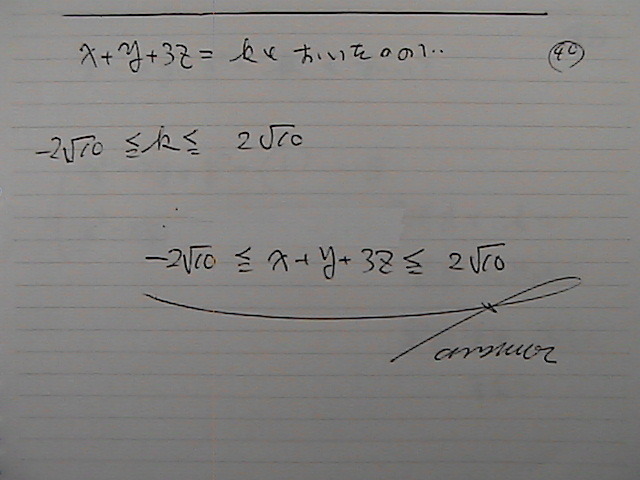 x+y+3z= kとおいたので.. 40
-2√10 ≦k≦ 2√10
-2√10 ≦ x+y+3z ≦ 2√10
answer